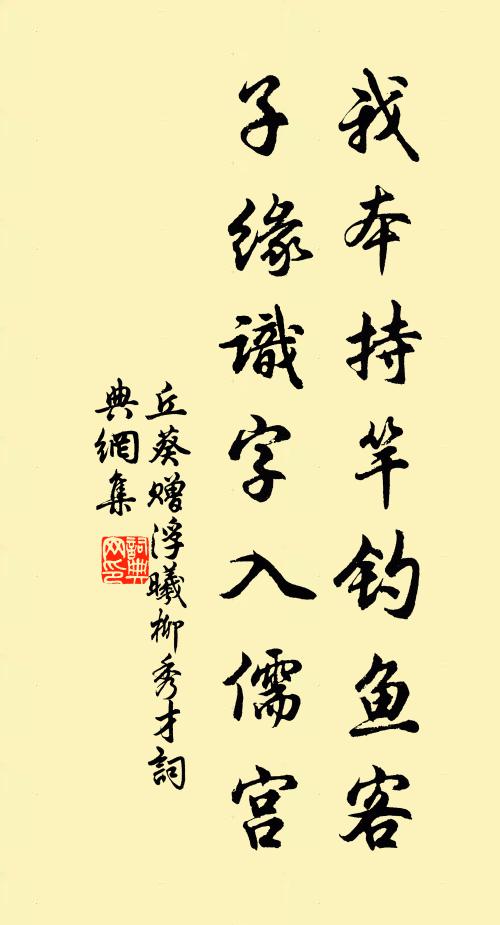 我本持竿钓鱼客
子缘識字入儒宫
丘葵赠浮曦柳秀才詞
典網集
詞典
网印